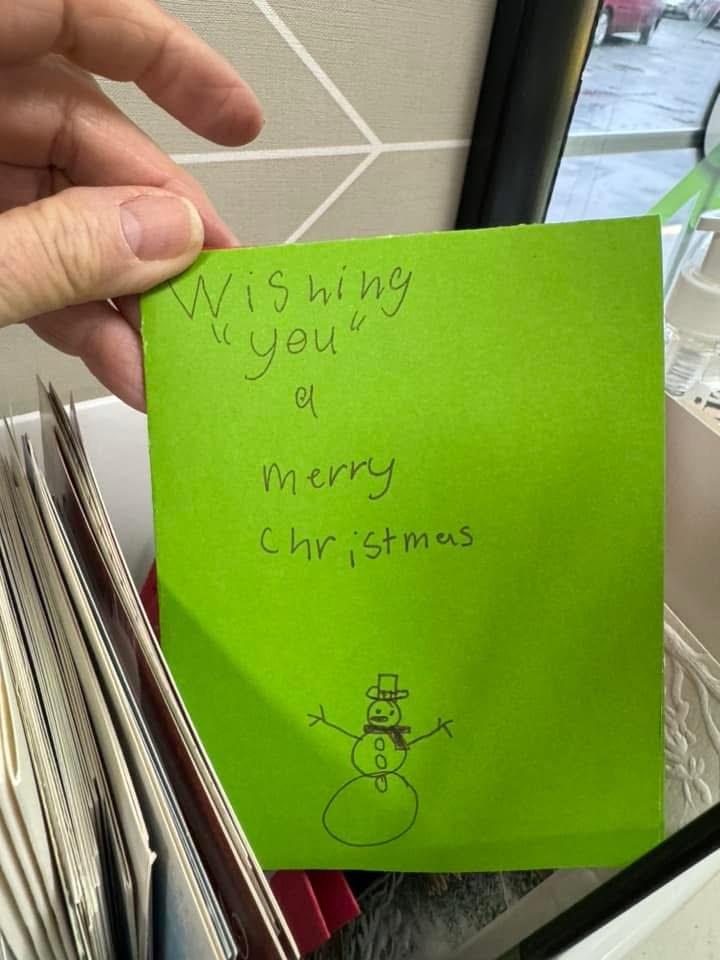 Wishing
"you"
a
merry
Christmas